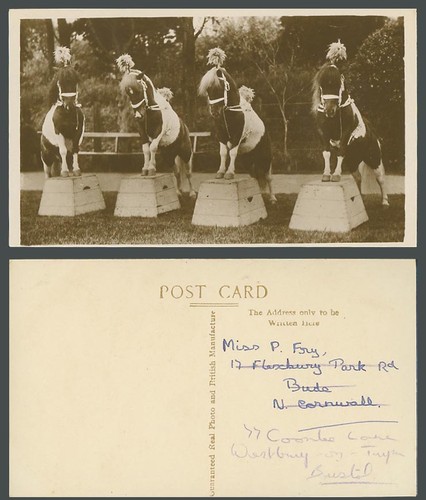 POST CARD
The Address only to be
Written Here
Guaranteed Real Photo and British Manufacture
Miss P. Fry,
17 Flexbury Park Rd
Bude
N. Cornwall.
77 Coombe Lane
Westbury-on-Trym
Bristol